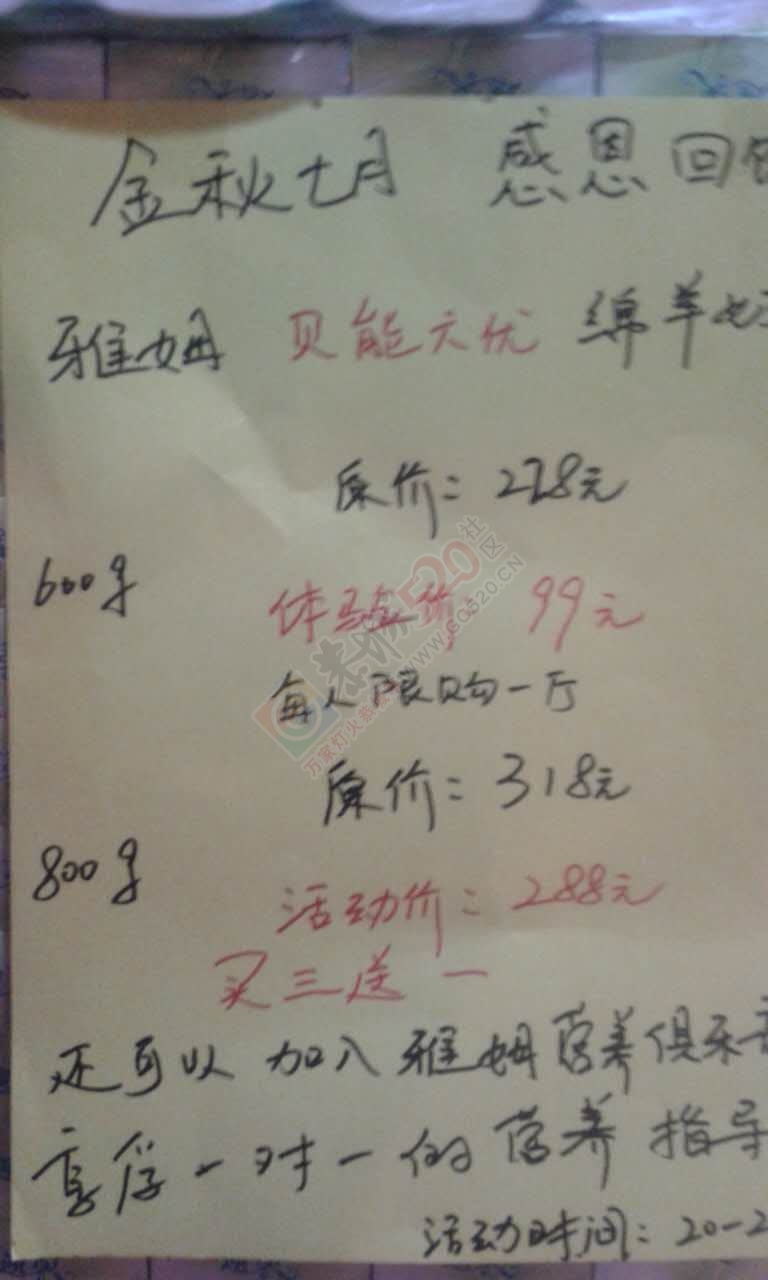 金秋七月 感恩回
雅姆 贝能六优 绵羊
原价：228元
600g
体验价：99元
每人限购一厅
原价：318元
800g
活动价：288元
买三送一
还可以加入雅姆营养俱乐
享受一对一的营养指导
活动时间：20-2
恭城520社区
WWW.GC520.CN
万家灯火恭